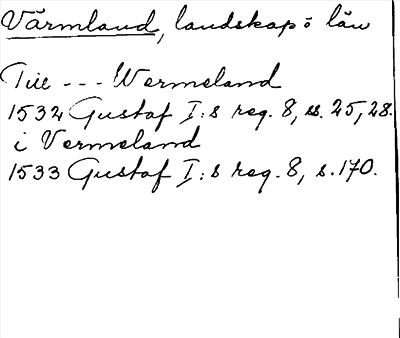 Värmland, landskap o län
Till --- Wermeland
1532 Gustaf I:s reg. 8, ss. 25, 28.
i Vermeland
1533 Gustaf I:s reg. 8, s. 170.